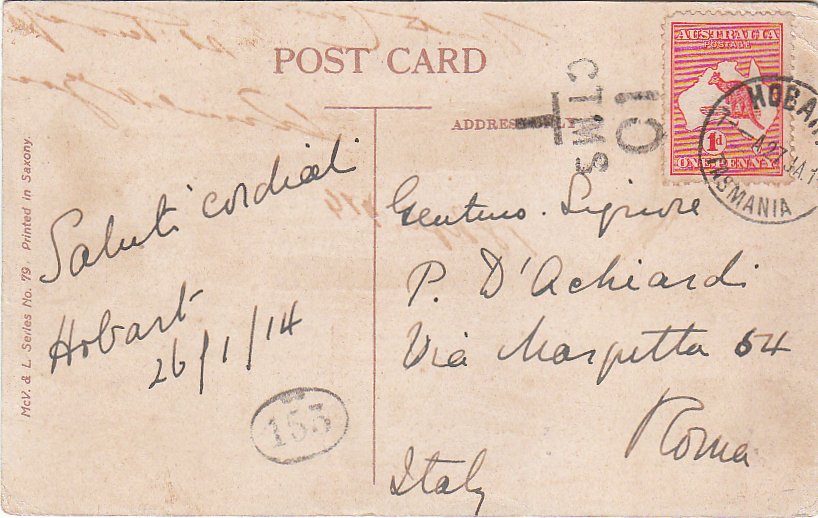 POST CARD
AUSTRALIA
POSTAGE
1d
ONE PENNY
HOBAR
TASMANIA
10
CTMS
T
ADDRESS ONLY
Saluti cordiali
Hobart
26/1/14
153
Gentmo. Signore
P. D'Achiardi
Via Margutta 54
Roma
Italy
McV. & L. Series No. 79. Printed in Saxony.